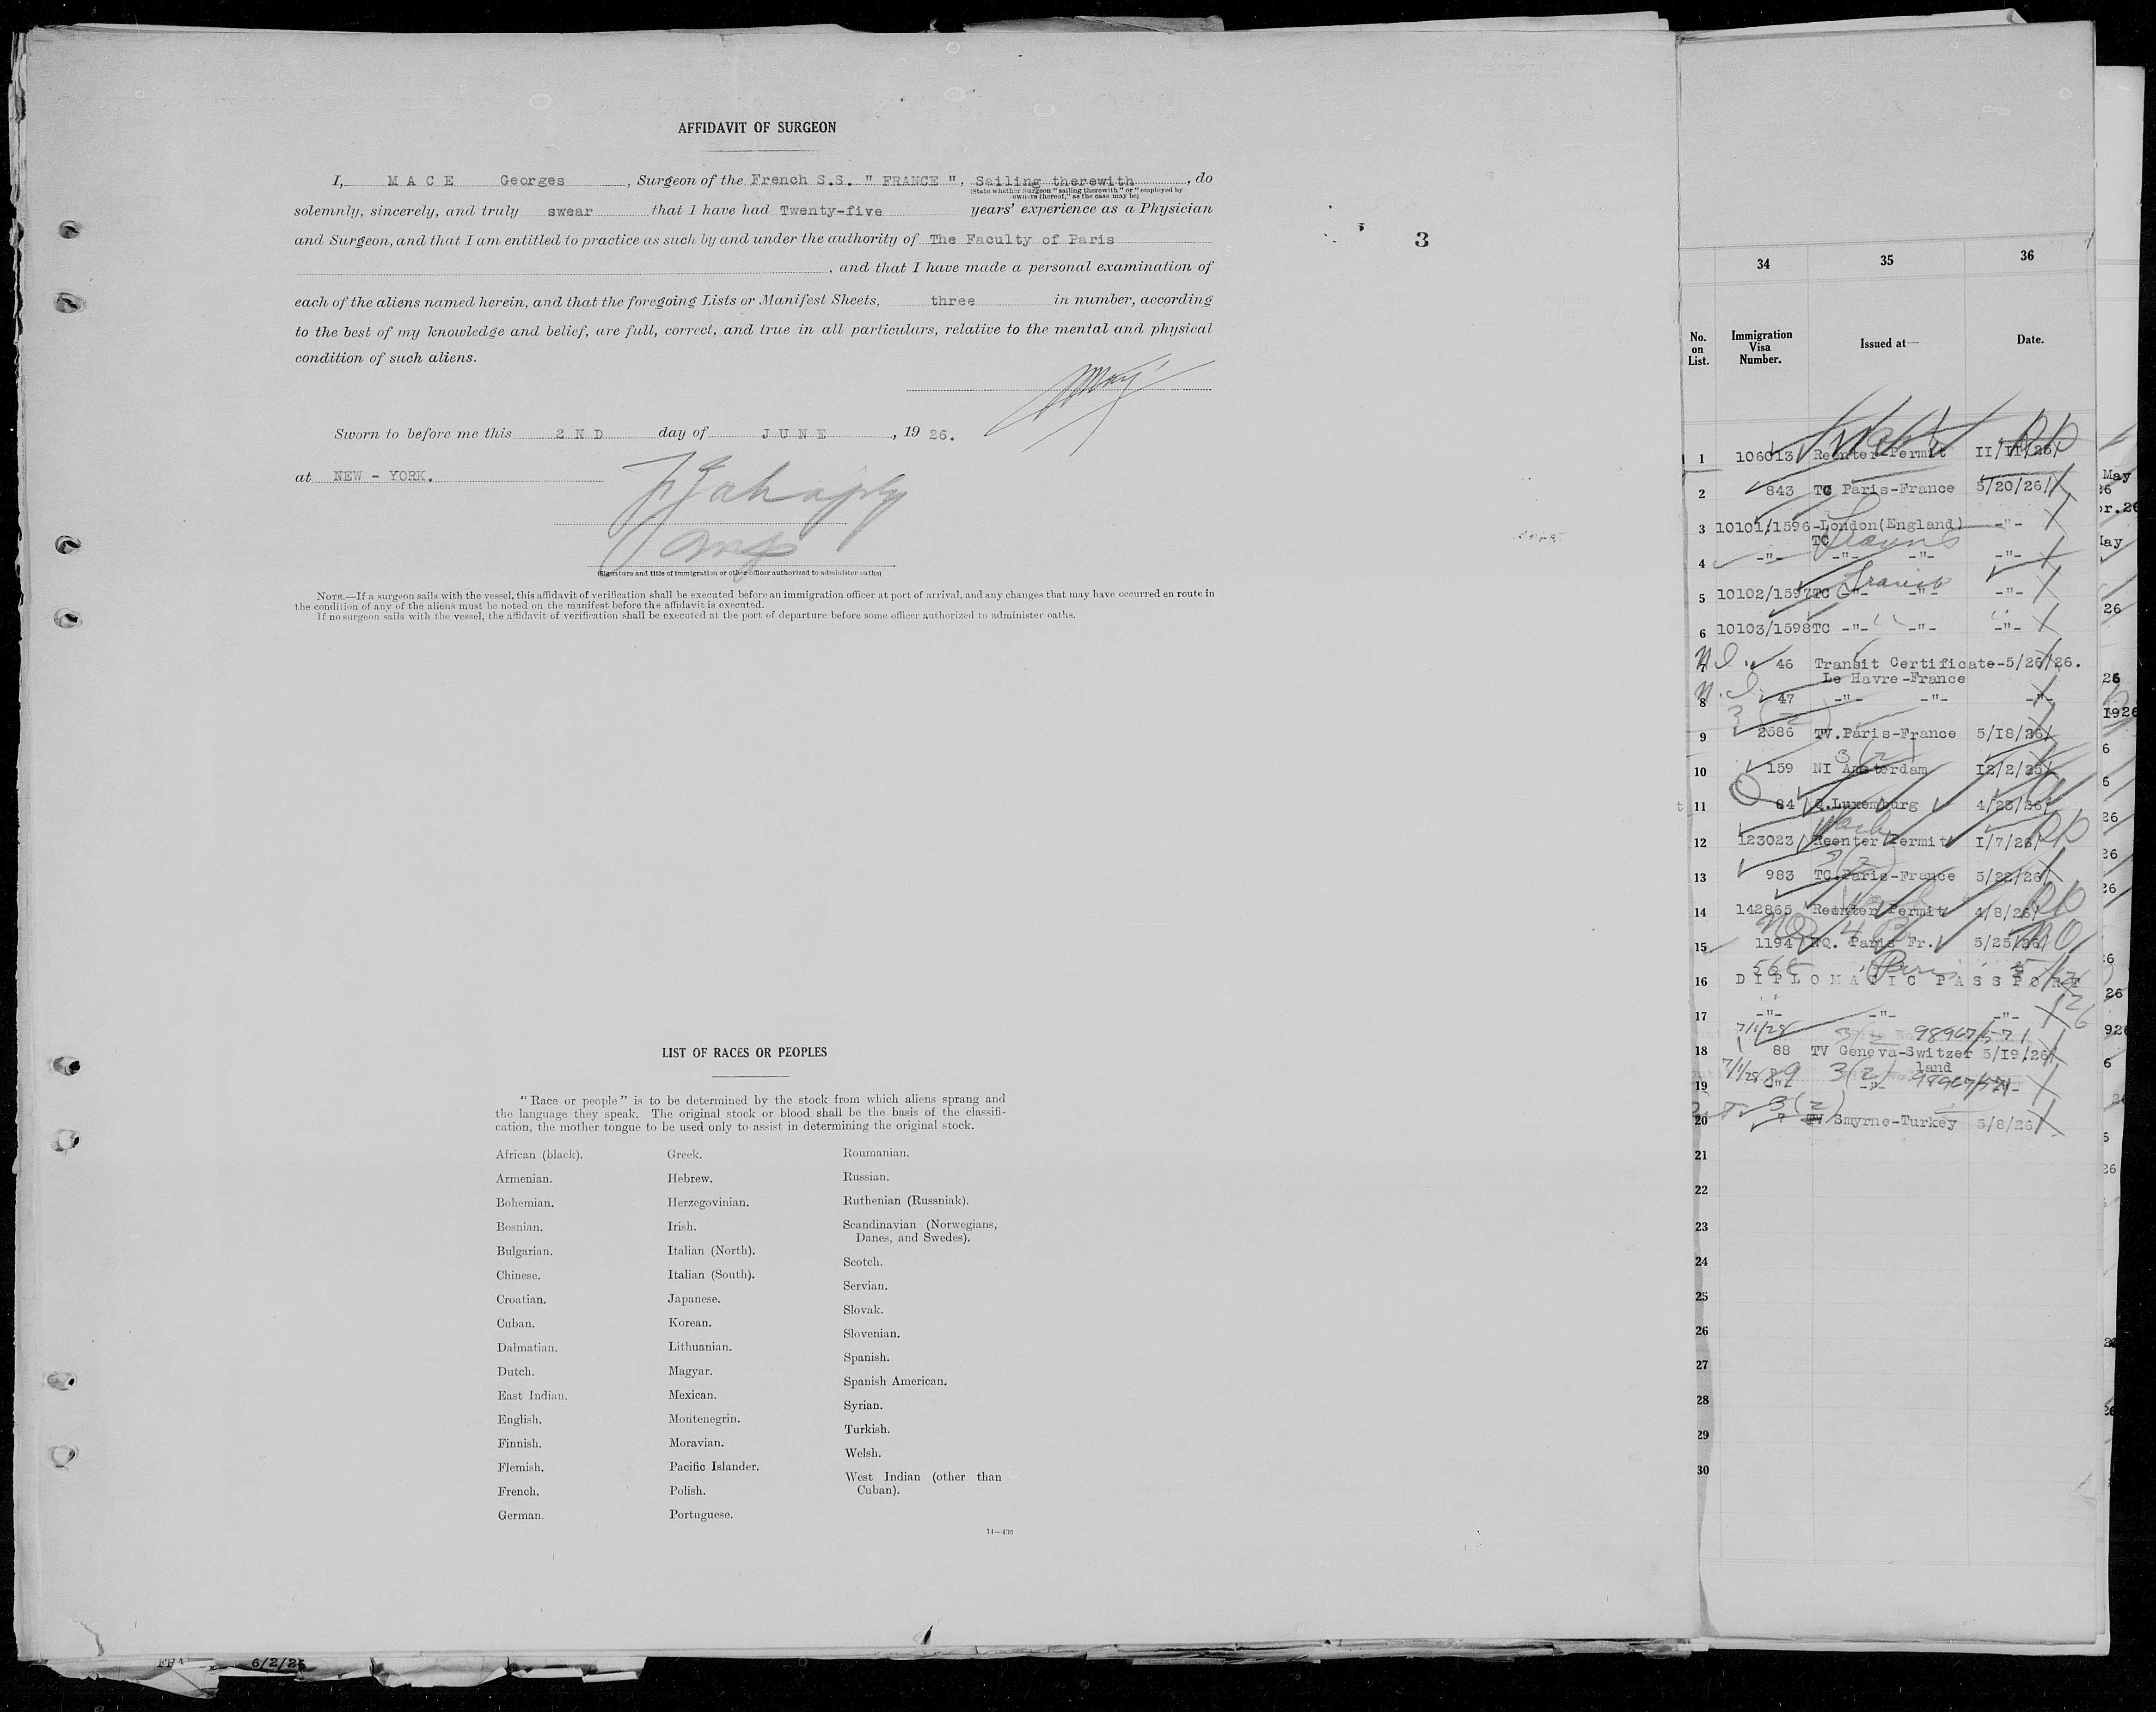 AFFIDAVIT OF SURGEON
I, MACE Georges, Surgeon of the French S.S. " FRANCE ", Sailing therewith, do
(State whether Surgeon "sailing therewith" or "employed by
owners thereof," as the case may be)
solemnly, sincerely, and truly swear that I have had Twenty-five years' experience as a Physician
and Surgeon, and that I am entitled to practice as such by and under the authority of The Faculty of Paris
, and that I have made a personal examination of
each of the aliens named herein, and that the foregoing Lists or Manifest Sheets, three in number, according
to the best of my knowledge and belief, are full, correct, and true in all particulars, relative to the mental and physical
condition of such aliens.
Sworn to before me this 2ND day of JUNE, 19 26.
at NEW - YORK.
(Signature and title of immigration or other officer authorized to administer oaths)
NOTE.—If a surgeon sails with the vessel, this affidavit of verification shall be executed before an immigration officer at port of arrival, and any changes that may have occurred en route in
the condition of any of the aliens must be noted on the manifest before the affidavit is executed.
If no surgeon sails with the vessel, the affidavit of verification shall be executed at the port of departure before some officer authorized to administer oaths.
3
LIST OF RACES OR PEOPLES
"Race or people" is to be determined by the stock from which aliens sprang and
the language they speak. The original stock or blood shall be the basis of the classifi-
cation, the mother tongue to be used only to assist in determining the original stock.
African (black).
Armenian.
Bohemian.
Bosnian.
Bulgarian.
Chinese.
Croatian.
Cuban.
Dalmatian.
Dutch.
East Indian.
English.
Finnish.
Flemish.
French.
German.
Greek.
Hebrew.
Herzegovinian.
Irish.
Italian (North).
Italian (South).
Japanese.
Korean.
Lithuanian.
Magyar.
Mexican.
Montenegrin.
Moravian.
Pacific Islander.
Polish.
Portuguese.
Roumanian.
Russian.
Ruthenian (Russniak).
Scandinavian (Norwegians,
Danes, and Swedes).
Scotch.
Servian.
Slovak.
Slovenian.
Spanish.
Spanish American.
Syrian.
Turkish.
Welsh.
West Indian (other than
Cuban).
14—430
6/2/26
34 35 36
No. on List. Immigration Visa Number. Issued at— Date.
1 106013 Reenter Permit II/II/25
2 843 TC Paris-France 5/20/26
3 10101/1596-London(England) -"-
TC
4 -"- -"- -"- -"-
5 10102/1597TC -"- -"- -"-
6 10103/1598TC -"- -"- -"-
46 Transit Certificate-5/26/26.
Le Havre-France
8 47 -"- -"- -"-
9 2586 TV.Paris-France 5/18/26
3 (2)
10 159 NI Amsterdam 12/2/25
11 84 Q.Luxemburg 4/23/26
12 123023 Reenter Permit I/7/26
3 (2)
13 983 TC.Paris-France 5/22/26
14 142865 Reenter Permit 4/8/26
15 1194 NQ. Paris Fr. 5/25/26
16 DIPLOMATIC PASSPORT
17 -"- -"- -"-
7/1/28 98967/571
18 88 TV Geneva-Switzer 5/19/26
land
7/1/28 89 3(2) 98967/571
19 -"- -"-
3(2)
20 7 TV Smyrne-Turkey 5/8/26
21
22
23
24
25
26
27
28
29
30